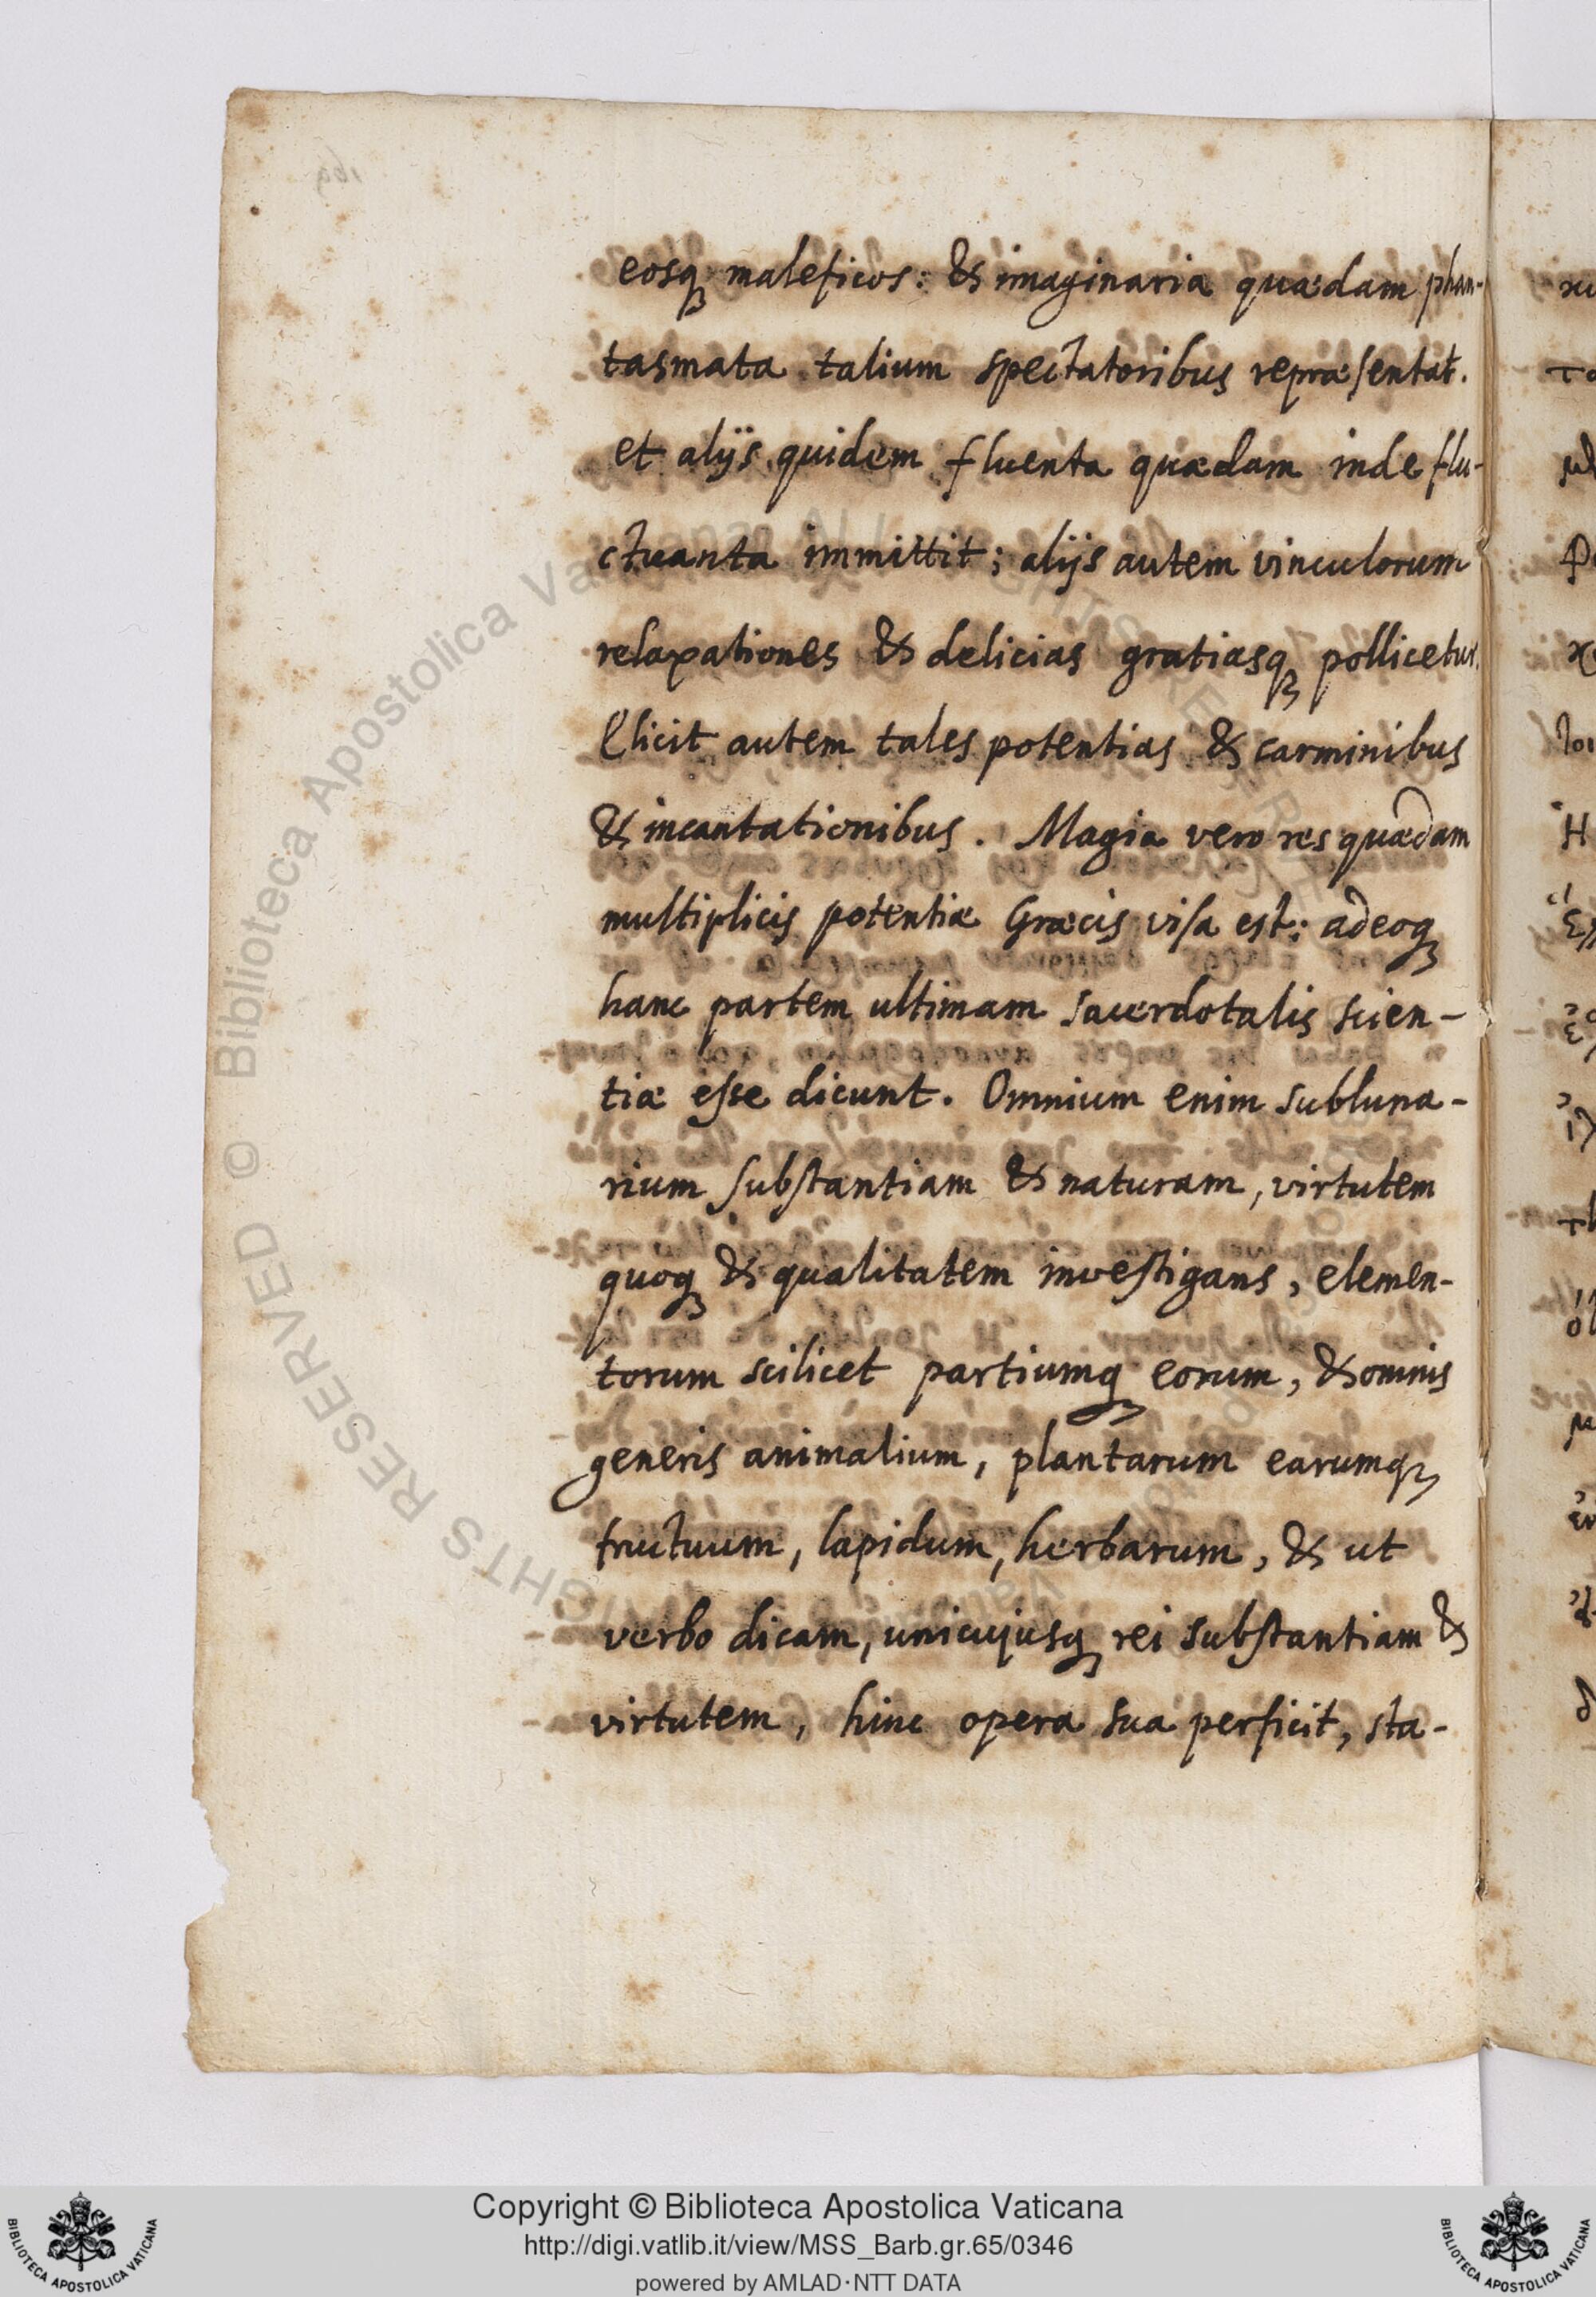 eosq maleficos: & imaginaria quædam phan-
tasmata talium spectatoribus repræsentat.
et alijs quidem fluenta quædam inde flu-
ctuanta immittit; alijs autem vinculorum
relaxationes & delicias gratiasq pollicetur.
Elicit autem tales potentias & carminibus
& incantationibus. Magia vero res quædam
multiplicis potentiæ Græcis visa est: adeoq
hanc partem ultimam sacerdotalis scien-
tiæ esse dicunt. Omnium enim subluna-
rium substantiam & naturam, virtutem
quoq & qualitatem investigans, elemen-
torum scilicet partiumq eorum, & omnis
generis animalium, plantarum earumq
fructuum, lapidum, herbarum, & ut
verbo dicam, unicujusq rei substantiam &
virtutem, hinc opera sua perficit, sta-
Copyright © Biblioteca Apostolica Vaticana
http://digi.vatlib.it/view/MSS_Barb.gr.65/0346
powered by AMLAD·NTT DATA
BIBLIOTECA APOSTOLICA VATICANA
BIBLIOTECA APOSTOLICA VATICANA